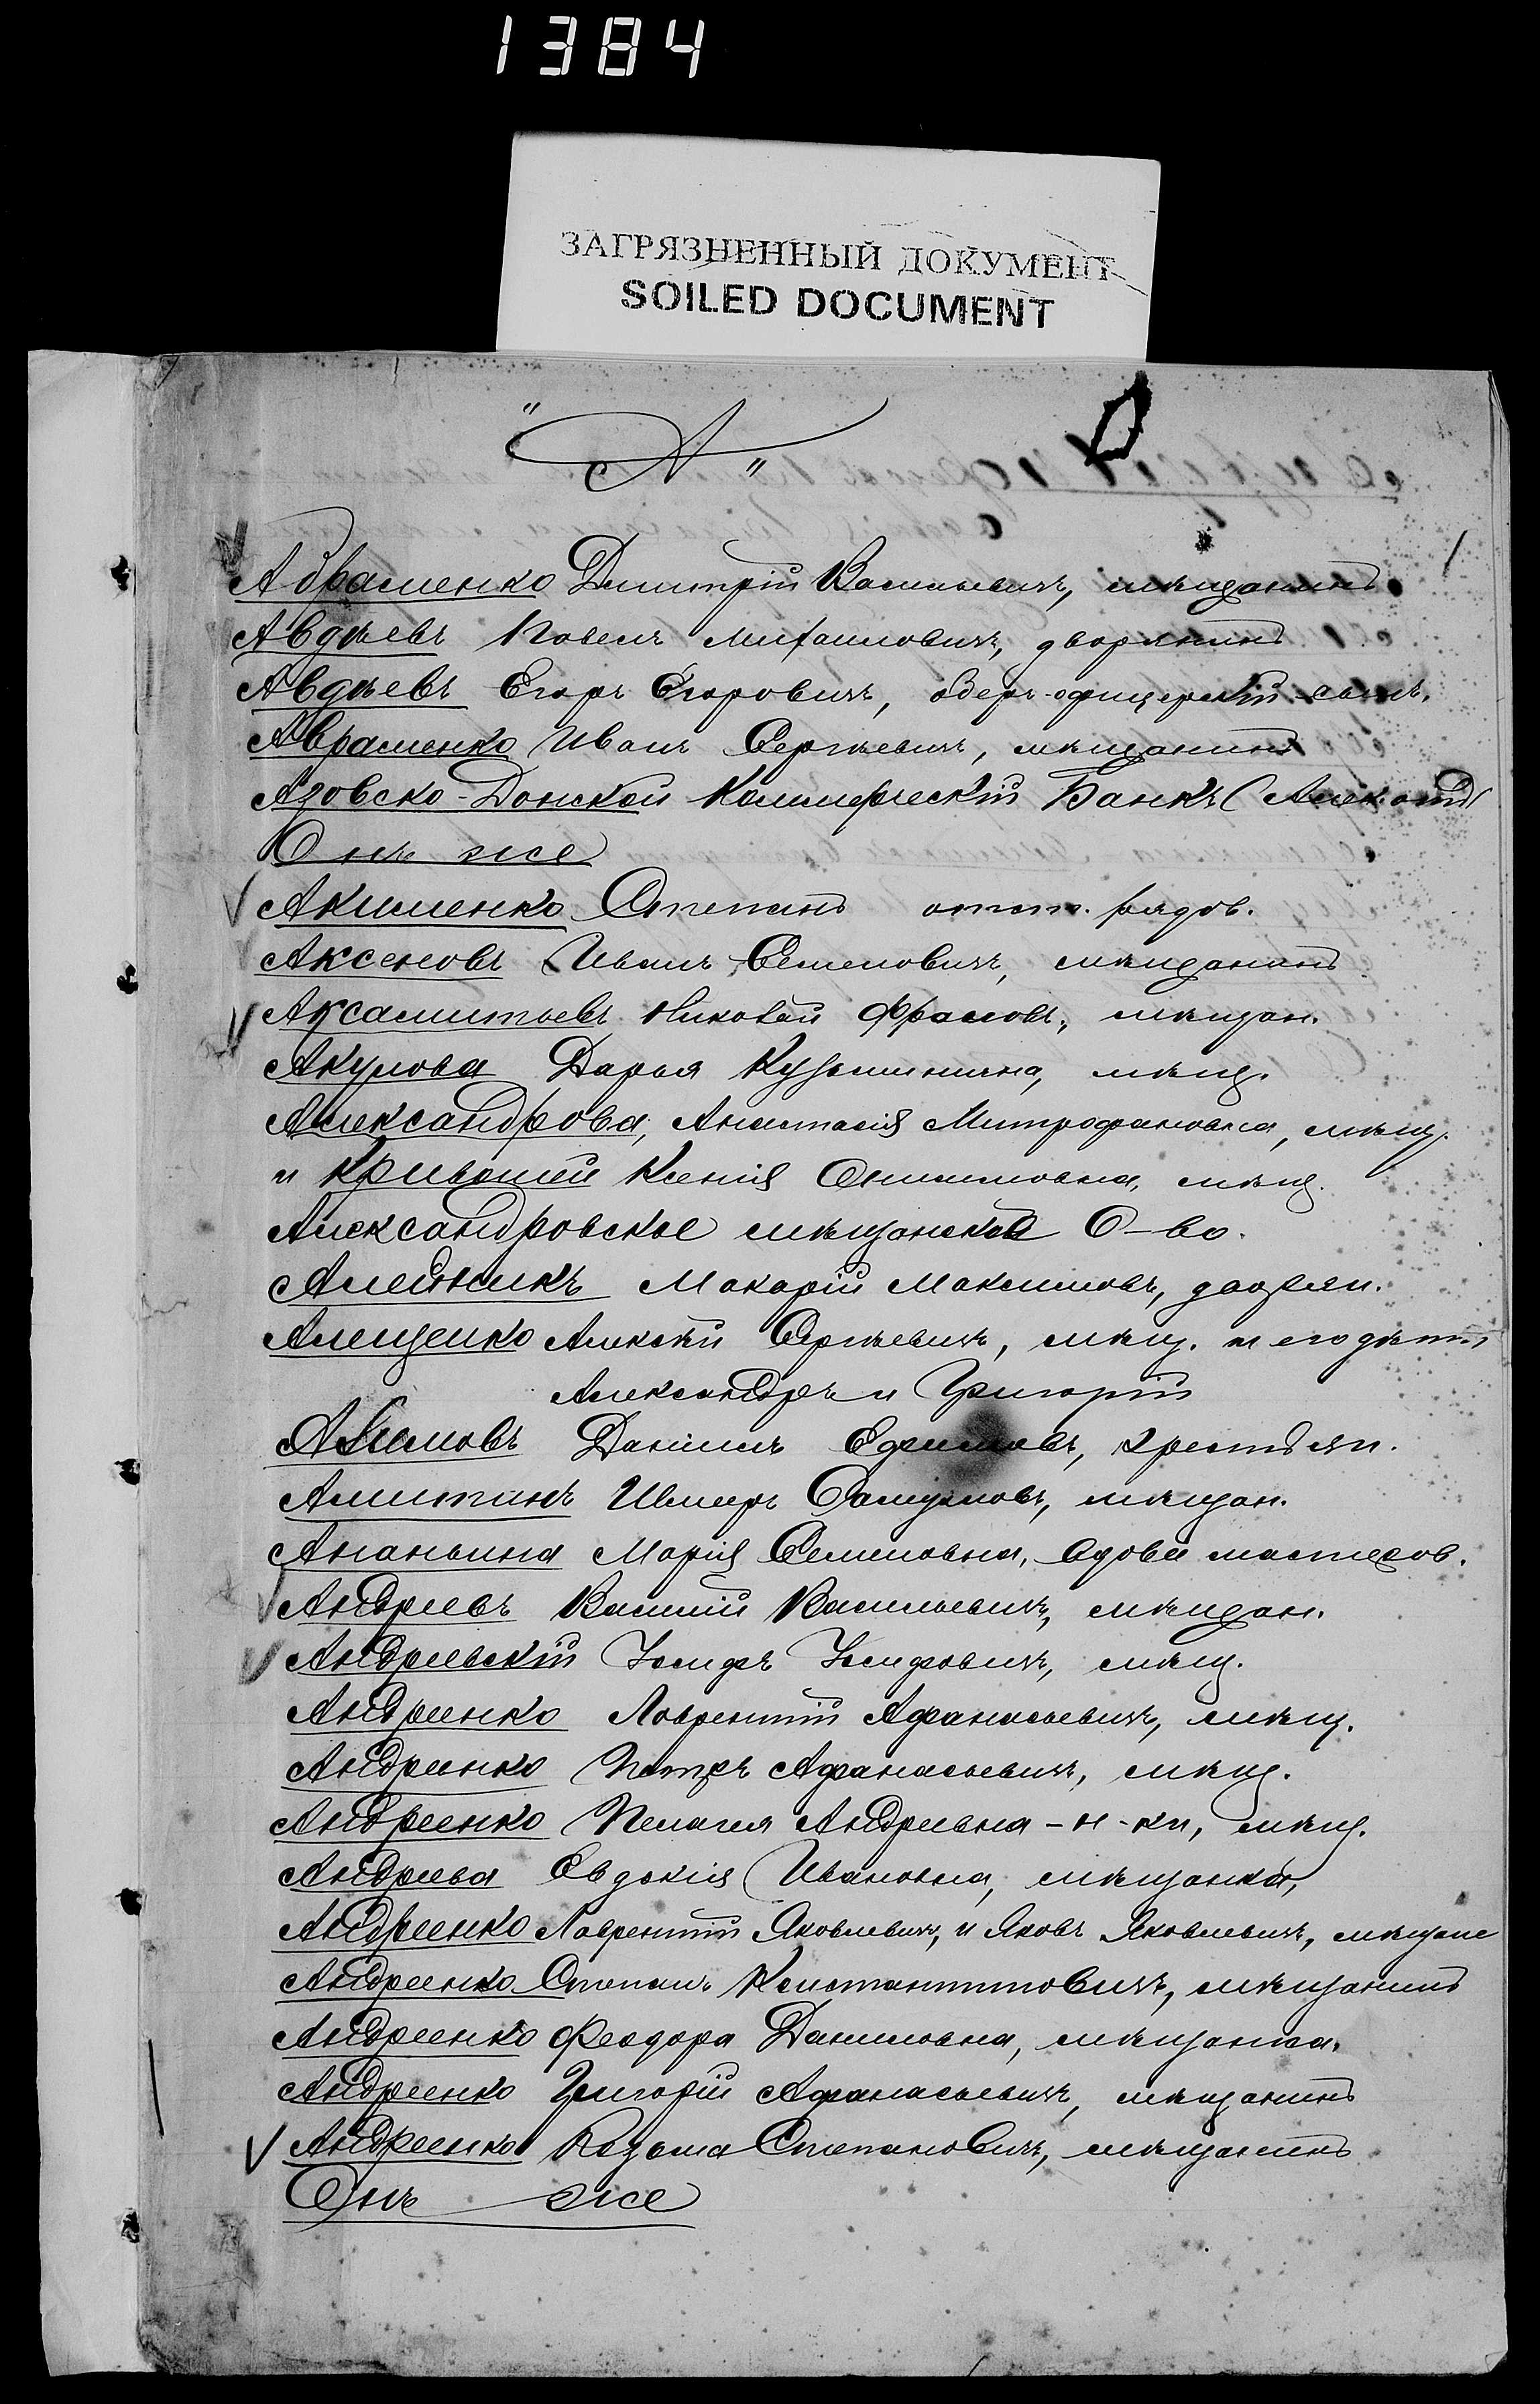 1384
ЗАГРЯЗНЕННЫЙ ДОКУМЕНТ
SOILED DOCUMENT
"А"
Абраменко Дмитрій Васильевичъ, мѣщанинъ
Авдѣевъ Павелъ Михаиловичъ, дворянинъ
Авдѣевъ Егоръ Егоровичъ, оберъ-офицерскій сынъ.
Авраменко Иванъ Сергѣевичъ, мѣщанинъ
Азовско-Донской Коммерческій Банкъ (Алек. отд.
Онъ же
Акименко Степанъ отст. рядов.
Аксеновъ Иванъ Семеновичъ, мѣщанинъ
Аксамитьевъ Николай Фроловъ, мѣщан.
Акулова Дарья Кузьминична, мѣщ.
Александрова, Анастасія Митрофановна, мѣщ.
и Кривошей Ксенія Онисимовна, мѣщ.
Александровское мѣщанское О-во.
Алейникъ Макарій Максимовъ, дворян.
Алещенко Алексѣй Сергѣевичъ, мѣщ. и его дѣти
Александръ и Григорій
Алимовъ Даніилъ Ефимовъ, крестьян.
Амитинъ Шмеръ Самуиловъ, мѣщан.
Ананьина Марія Семеновна, вдова мастеров.
Андреевъ Василій Васильевичъ, мѣщан.
Андреевскій Іосифъ Іосифовичъ, мѣщ.
Андреенко Лаврентій Афанасьевичъ, мѣщ.
Андреенко Петръ Афанасьевичъ, мѣщ.
Андреенко Пелагея Андреевна - н-ки, мѣщ.
Андреева Евдокія Ивановна, мѣщанка,
Андреенко Лаврентій Яковлевичъ, и Яковъ Яковлевичъ, мѣщане
Андреенко Степанъ Константиновичъ, мѣщанинъ
Андреенко Феодора Даниловна, мѣщанка.
Андреенко Григорій Афанасьевичъ, мѣщанинъ
Андреенко Козьма Степановичъ, мѣщанинъ
Онъ же